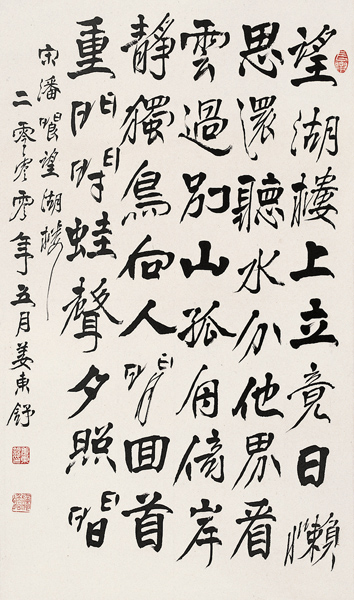 望湖樓上立竟日懶
思還聽水分他界看
雲過別山孤舟倚岸
靜獨鳥向人閒回首
重門閉蛙聲夕照間
宋潘閬望湖樓
二零零零年五月姜東舒